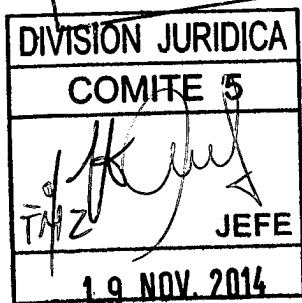 DIVISION JURIDICA
COMITE 5
TMZ
JEFE
19 NOV. 2014